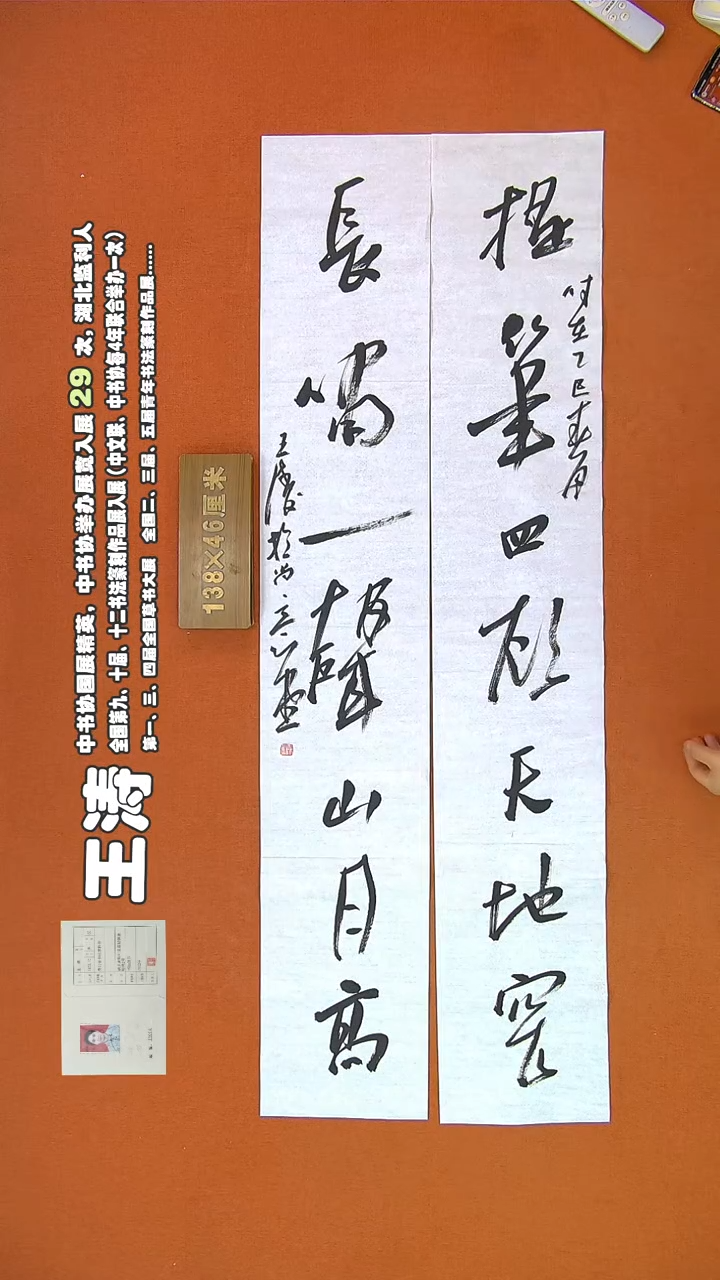 握筆四顧天地窄
时在乙巳春月
長嘯一聲山月高
王濤於尚意
138×46厘米
王涛
中书协国展精英,中书协举办展赛入展 29 次,湖北监利人
全国第九、十届、十二书法篆刻作品展入展(中文联、中书协每4年联合举办一次)
第一、三、四届全国草书大展 全国二、三届、五届青年书法篆刻作品展......